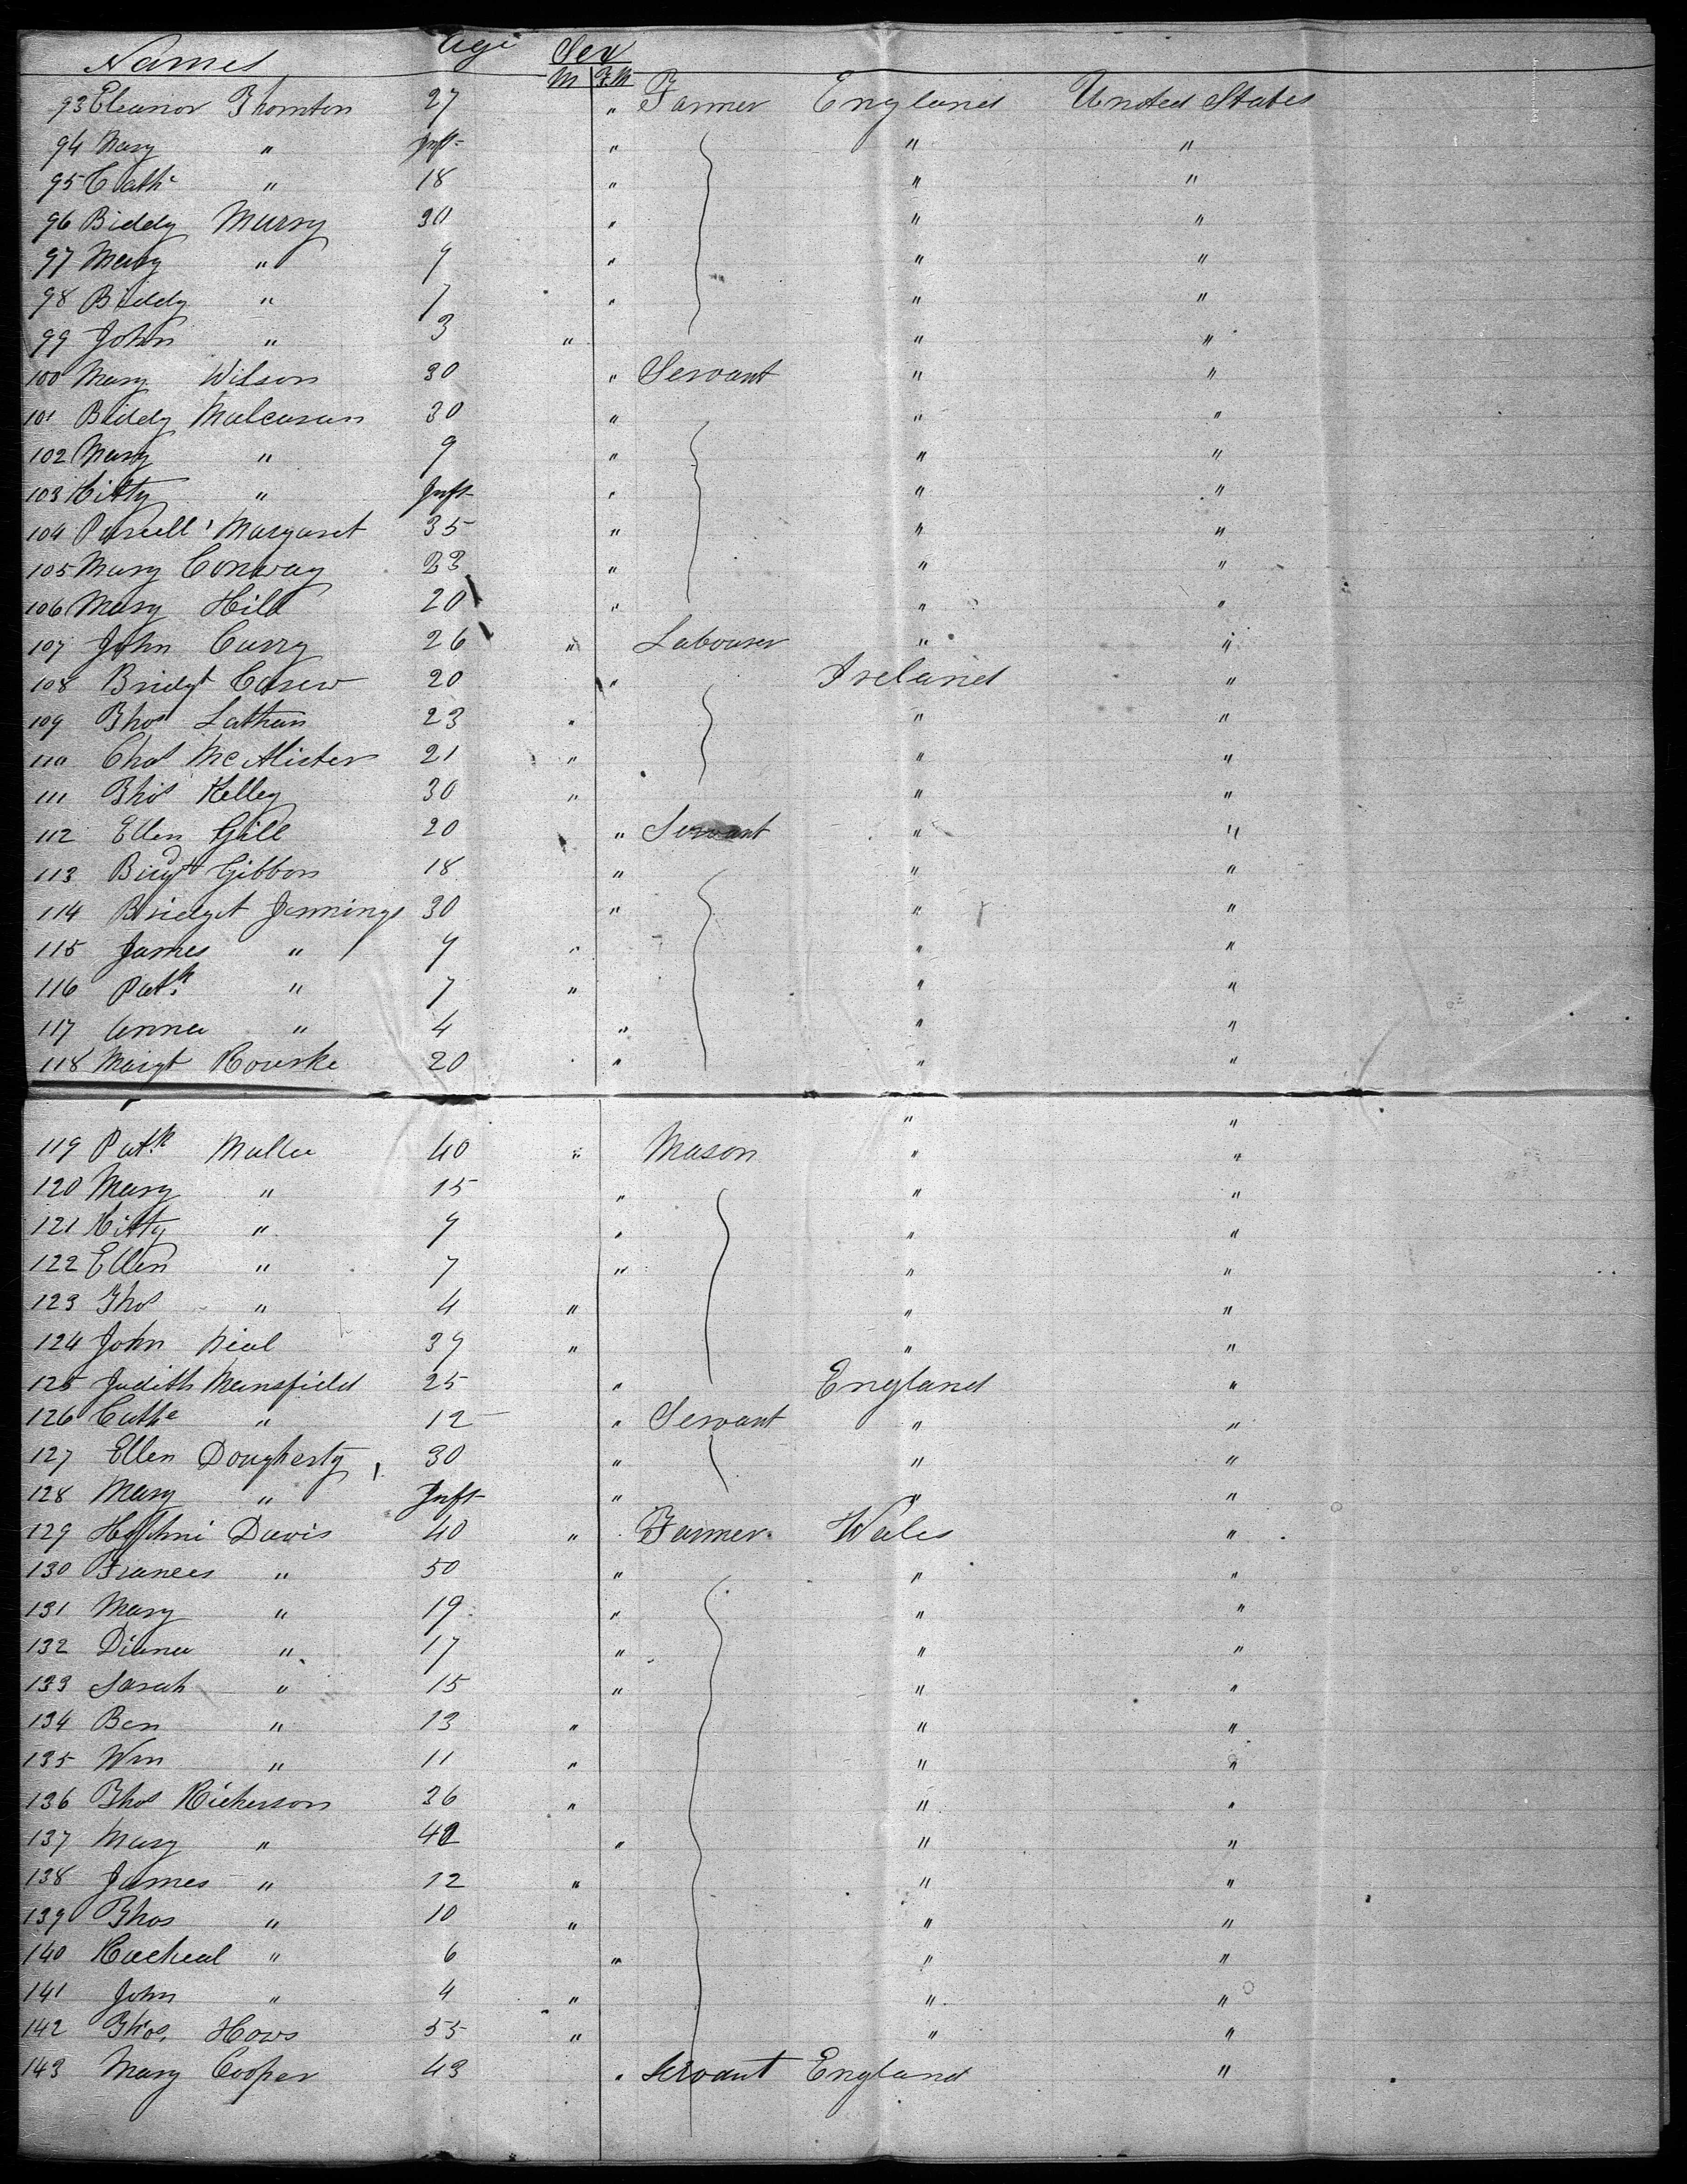 Names Age Sex
M F.M
93 Eleanor Thornton 27 " Farmer England United States
94 Mary " Inft " " "
95 Cath^e " 18 " " "
96 Biddy Murry 30 " " "
97 Mary " 9 " " "
98 Biddy " 7 " " "
99 John " 3 " " "
100 Mary Wilson 30 " Servant " "
101 Biddy 30 " " "
102 Mary " 9 " " "
103 Kitty " Inft " " "
104 Purcell Margaret 35 " " "
105 Mary Conway 23 " " "
106 Mary Hill 20 " " "
107 John Curry 26 " Labourer " "
108 Bridgt Carew 20 " Ireland "
109 Thos Lathan 23 " " "
110 Chas McAlister 21 " " "
111 Thos Kelley 30 " " "
112 Ellen Gill 20 " Servant " "
113 Bidgt Gibbon 18 " " "
114 Bridget Jennings 30 " " "
115 James " 9 " " "
116 Patk " 7 " " "
117 Anna " 4 " " "
118 Margt Rourke 20 " " "
" "
119 Patk Malla 40 " Mason " "
120 Mary " 15 " " "
121 Kitty " 9 " " "
122 Ellen " 7 " " "
123 Thos " 4 " " "
124 John Nial 39 " " "
125 Judith Mansfield 25 " England "
126 Cathe " 12 " Servant " "
127 Ellen Dougherty 30 " " "
128 Mary " Inft " " "
129 Davis 40 " Farmer Wales "
130 Frances " 50 " " "
131 Mary " 19 " " "
132 Diana " 17 " " "
133 Sarah " 15 " " "
134 Ben " 13 " " "
135 Wm " 11 " " "
136 Thos Richerson 36 " " "
137 Mary " 42 " " "
138 James " 12 " " "
139 Thos " 10 " " "
140 Racheal " 6 " " "
141 John " 4 " " "
142 Thos. Hows 55 " " "
143 Mary Cooper 43 " Servant England "